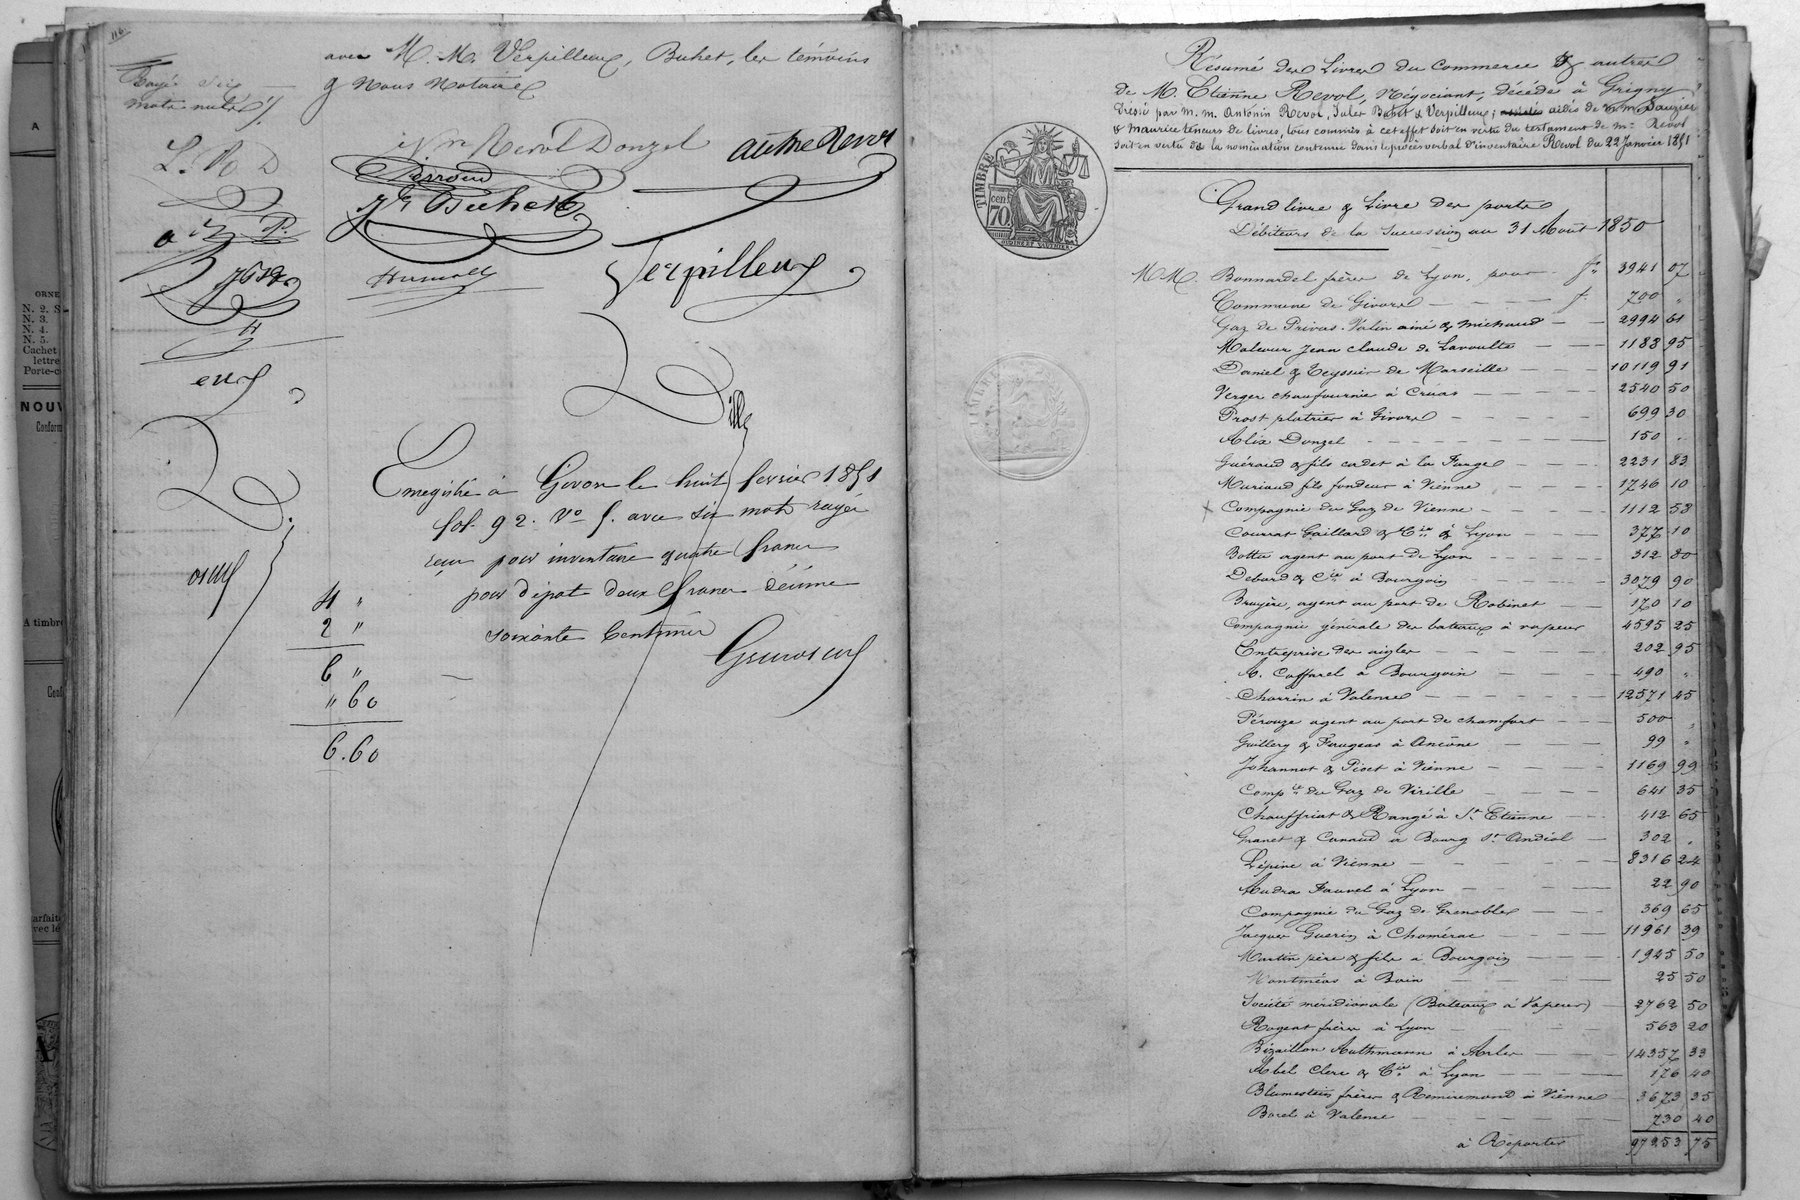 116
avec M. M. Verpilleux, Buhet, les témoins
& nous Notaires
Rayé six
mots nuls
L. R D
Vve Revol Donzel
antne Revol
Perroud
P.
Js Buhet
Verpilleux
eux
Dill
Enregistré à Givors le huit février 1851
fol. 92. Vo f. avec six mots rayés
reçu pour inventaire quatre francs
pour dépôt deux francs décime
soixante centimes
4 "
2 "
6 "
" 60
6.60
Résumé des Livres du Commerce & autres
de M. Etienne Revol, Négociant, décédé à Grigny
Dréssé par m. m. Antonin Revol, Jules Buhet & Verpilleux; assistés aidés de m. m. Sauzier
& Maurice teneurs de livres, tous commis à cet effet soit en vertu du testament de mr. Revol
soit en vertu de la nomination contenue dans le procès verbal d'inventaire Revol du 22 Janvier 1851
TIMBRE
cen
70
Grand livre & Livre des ports
Débiteurs de la succession au 31 Août 1850
M.M. Bonnardel frères de Lyon, pour fr. 3941 07
Commune de Givors f. 700 "
Gaz de Privas. Valin ainé & Michaud 2994 61
Maleour Jean Claude de Lavoulte 1183 95
Daniel & Teyssier de Marseille 10119 91
Verger chaufournier à Cruas 2540 50
Prost platrier à Givors 699 30
Alix Donzel 150 "
Guéraud & fils cadet à la Farge 2231 83
Mariaud fils fondeur à Vienne 1746 10
Compagnie du Gaz de Vienne 1112 53
Courrat Gaillard & Cie à Lyon 377 10
Bottu agent au port de Lyon 312 80
Debard & Cie à Bourgoin 3079 90
Bruyère, agent au port de Robinet 170 10
Compagnie générale des bateaux à vapeur 4595 25
Entreprise des aigles 202 95
A. Caffarel à Bourgoin 490 "
Charrin à Valence 12571 45
Pérouze agent au port de Chamfort 500 "
Guillery & Faugeas à Ancône 99 "
Johannot & Picet à Vienne 1169 99
Compie du Gaz de Virille 641 35
Chauffriat & Rangé à St. Etienne 412 65
Granet & Canaud à Bourg St. Andéol 302 "
Lépine à Vienne 8316 24
Audra Fauvel à Lyon 22 90
Compagnie du Gaz de Grenoble 369 65
Jacques Guerin à Chomérac 11961 39
Martin père & fils à Bourgoin 1925 50
Montméas à Bain 25 50
Société méridionale (Bateaux à Vapeur) 2762 50
Rogeat frères à Lyon 563 20
Bizaillon Authmann à Arles 14357 33
Abel Clerc & Cie à Lyon 176 40
Blumestein frères & Remiremond à Vienne 3673 35
Borel à Valence 730 40
à Reporter 97253 75
A
ORNE
N. 2. S
N. 3.
N. 4.
N. 5.
Cachet
lettre
Porte-c
NOUV
Conform
A timbre
Conf
arfait
vec lé